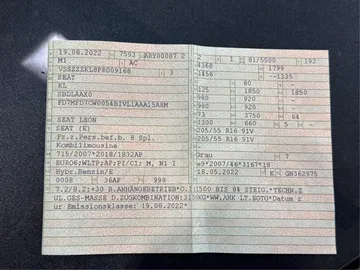 19.08.2022 7593 ARY00087 2
M1 AC
VSSZZZKL8PR009168 3
SEAT
KL
SBDLAAX0
SEAT LEON
SEAT (E)
Fz.z.Pers.bef.b. 8 Spl.
Kombilimousine
715/2007*2018/1832AP
EURO6;WLTP;AP;PI/CI; M, N1 I
Hybr.Benzin/E
0008 36AP 999
2 1 81/5500 192
4368 1799
1456 --1335
80
125 1850 1850
980 920
980 920
73 3750 64
1300 660 5
205/55 R16 91V
205/55 R16 91V
Grau 7
e9*2007/46*3167*18
18.05.2022 K GN362975
7.2/8.2:+30 B.ANHÄNGEBETRIEB*O.1:1500 BIS 8% STEIG.*TECHN.Z
UL.GES-MASSE D.ZUGKOMBINATION:3130KG*WW.AHK LT.EGTG*Datum z
ur Emissionsklasse: 19.08.2022*